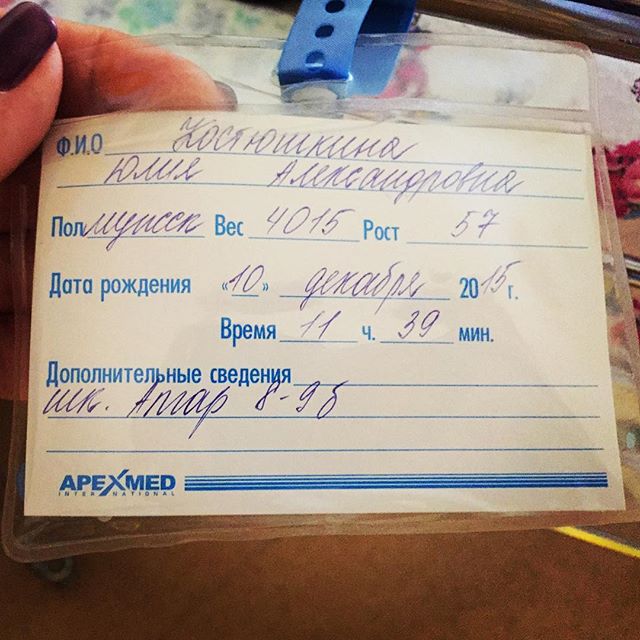 Ф.И.О Костюшкина
Юлия Александровна
Пол мужск Вес 4015 Рост 57
Дата рождения «10» декабря 2015 г.
Время 11 ч. 39 мин.
Дополнительные сведения
шк. Апгар 8-9б
APEXMED
INTERNATIONAL